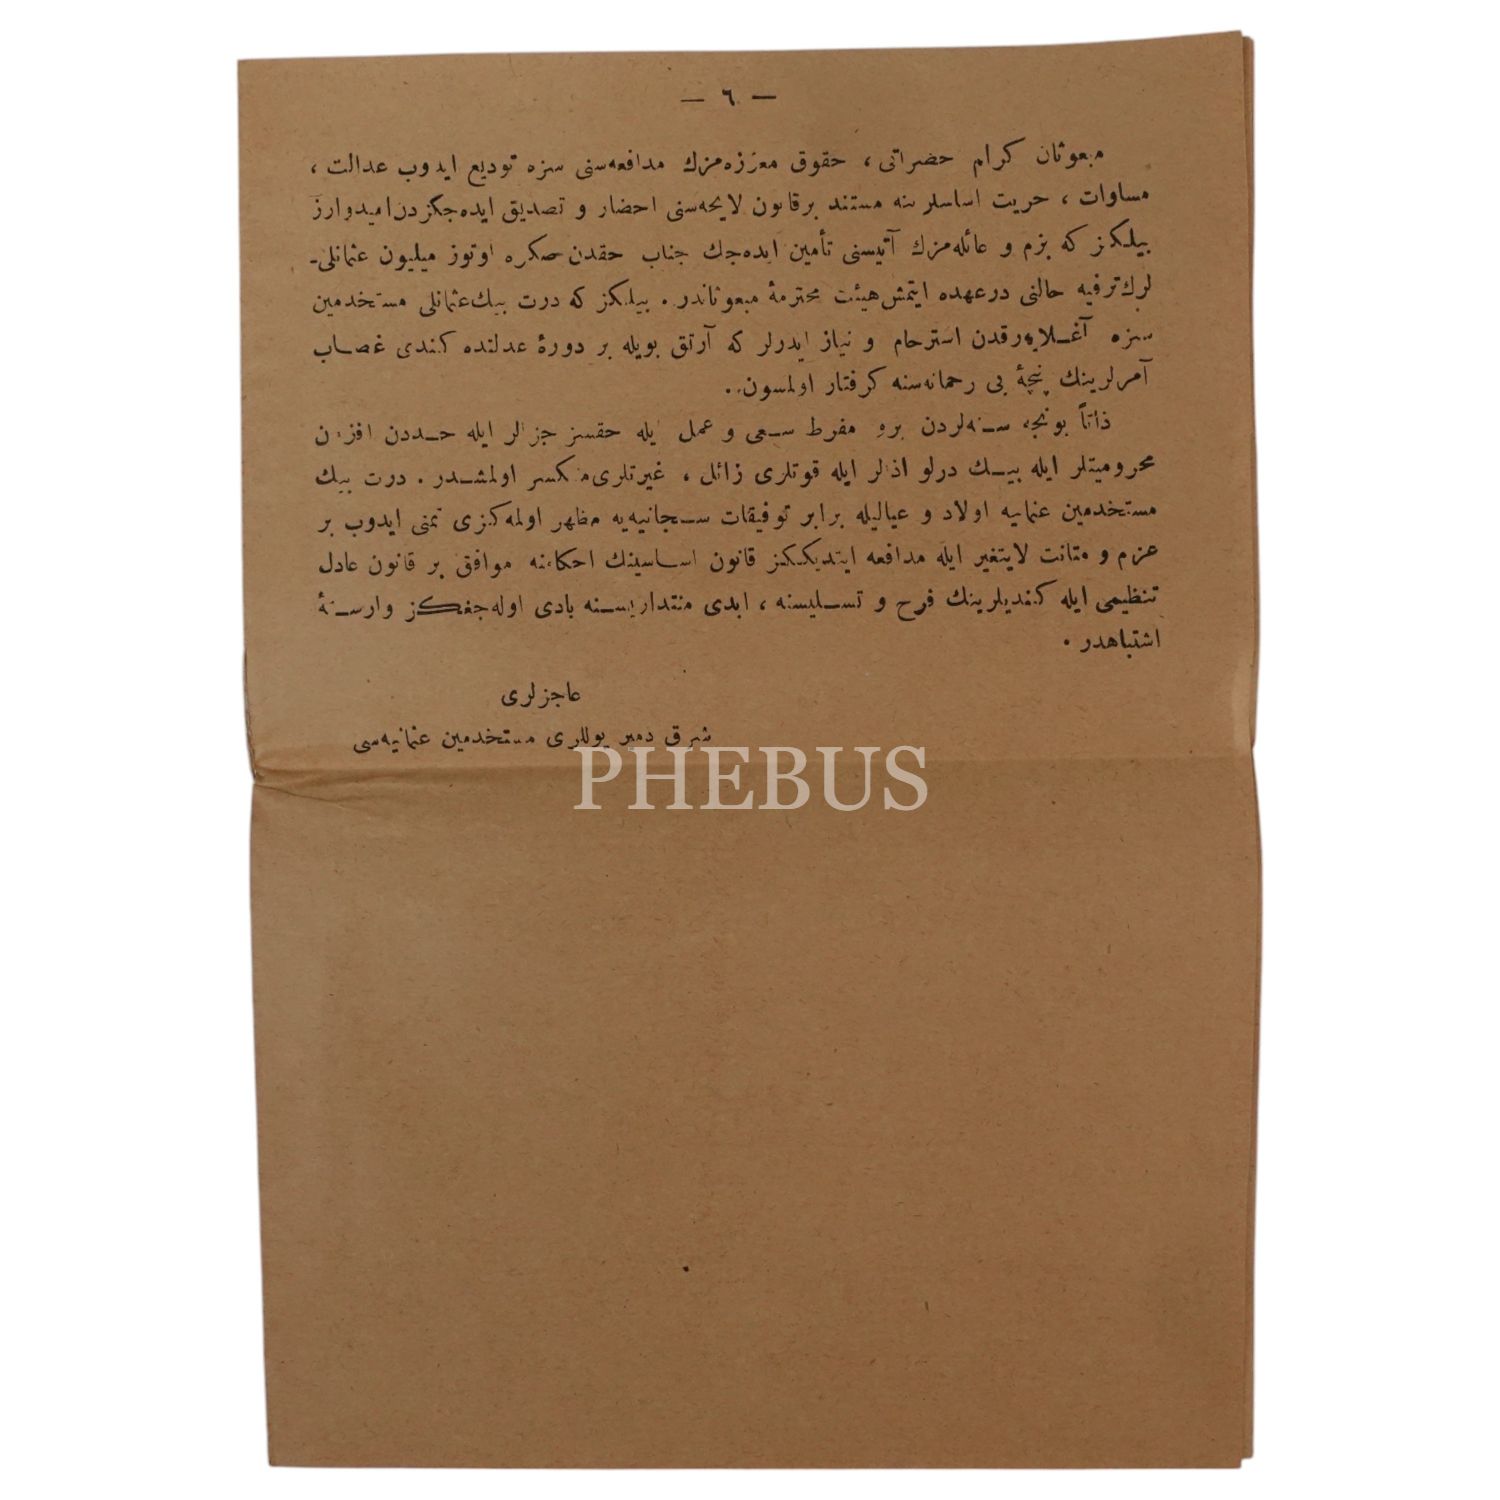 — ٦ —
مبعوثان كرام حضراتی ، حقوق معززه‌مزك مدافعه‌سنی سزه تودیع ایدوب عدالت ،
مساوات ، حریت اساسلرینه مستند برقانون لایحه‌سنی احضار و تصدیق ایده‌جگكزدن امیدوارز
بیلیكز كه بزم و عائله‌مزك آتیسنی تأمین ایده‌جك جناب حقدن صكره اوتوز میلیون عثمانلی‌-
لرك ترفیه حالنی درعهده ایتمش هیئت محترمهٔ مبعوثاندر . بیلیكز كه درت بیك عثمانلی مستخدمین
سزه آغلایه‌رقدن استرحام و نیاز ایدرلر كه آرتق بویله بر دورهٔ عدلنده كندی غصاب
آمرلرینك پنچهٔ بی رحمانه‌سنه كرفتار اولمسون .
ذاتاً بونجه سنه‌لردن بری مفرط سعی و عمل ایله حقسز جزالر ایله حددن افزون
محرومیتلر ایله بیك درلو اذالر ایله قوتلری زائل ، غیرتلری منكسر اولمشدر . درت بیك
مستخدمین عثمانیه اولاد و عیالیله برابر توفیقات سبحانیه‌یه مظهر اولمه‌كزی تمنی ایدوب بر
عزم و متانت لایتغیر ایله مدافعه ایتدیككز قانون اساسینك احكامنه موافق بر قانون عادل
تنظیمی ایله كندیلرینك فرح و تسلیسنه ، ابدی منتداریسنه بادی اوله‌جغكز وارستهٔ
اشتباهدر .
عاجزلری
شرق دمیر یوللری مستخدمین عثمانیه‌سی
PHEBUS